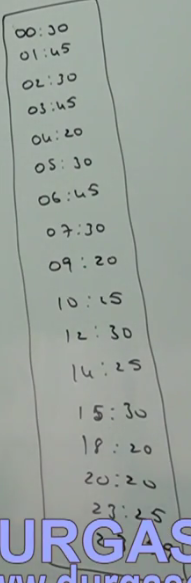 00:30
01:45
02:30
03:45
04:20
05:30
06:45
07:30
09:20
10:15
12:30
14:25
15:30
18:20
20:20
23:25
URGAS
www.durgas